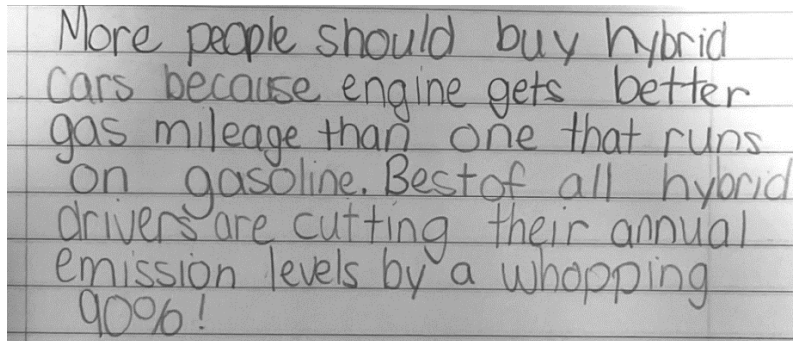 More people should buy hybrid
cars because engine gets better
gas mileage than one that runs
on gasoline. Best of all hybrid
drivers are cutting their annual
emission levels by a whopping
90%!